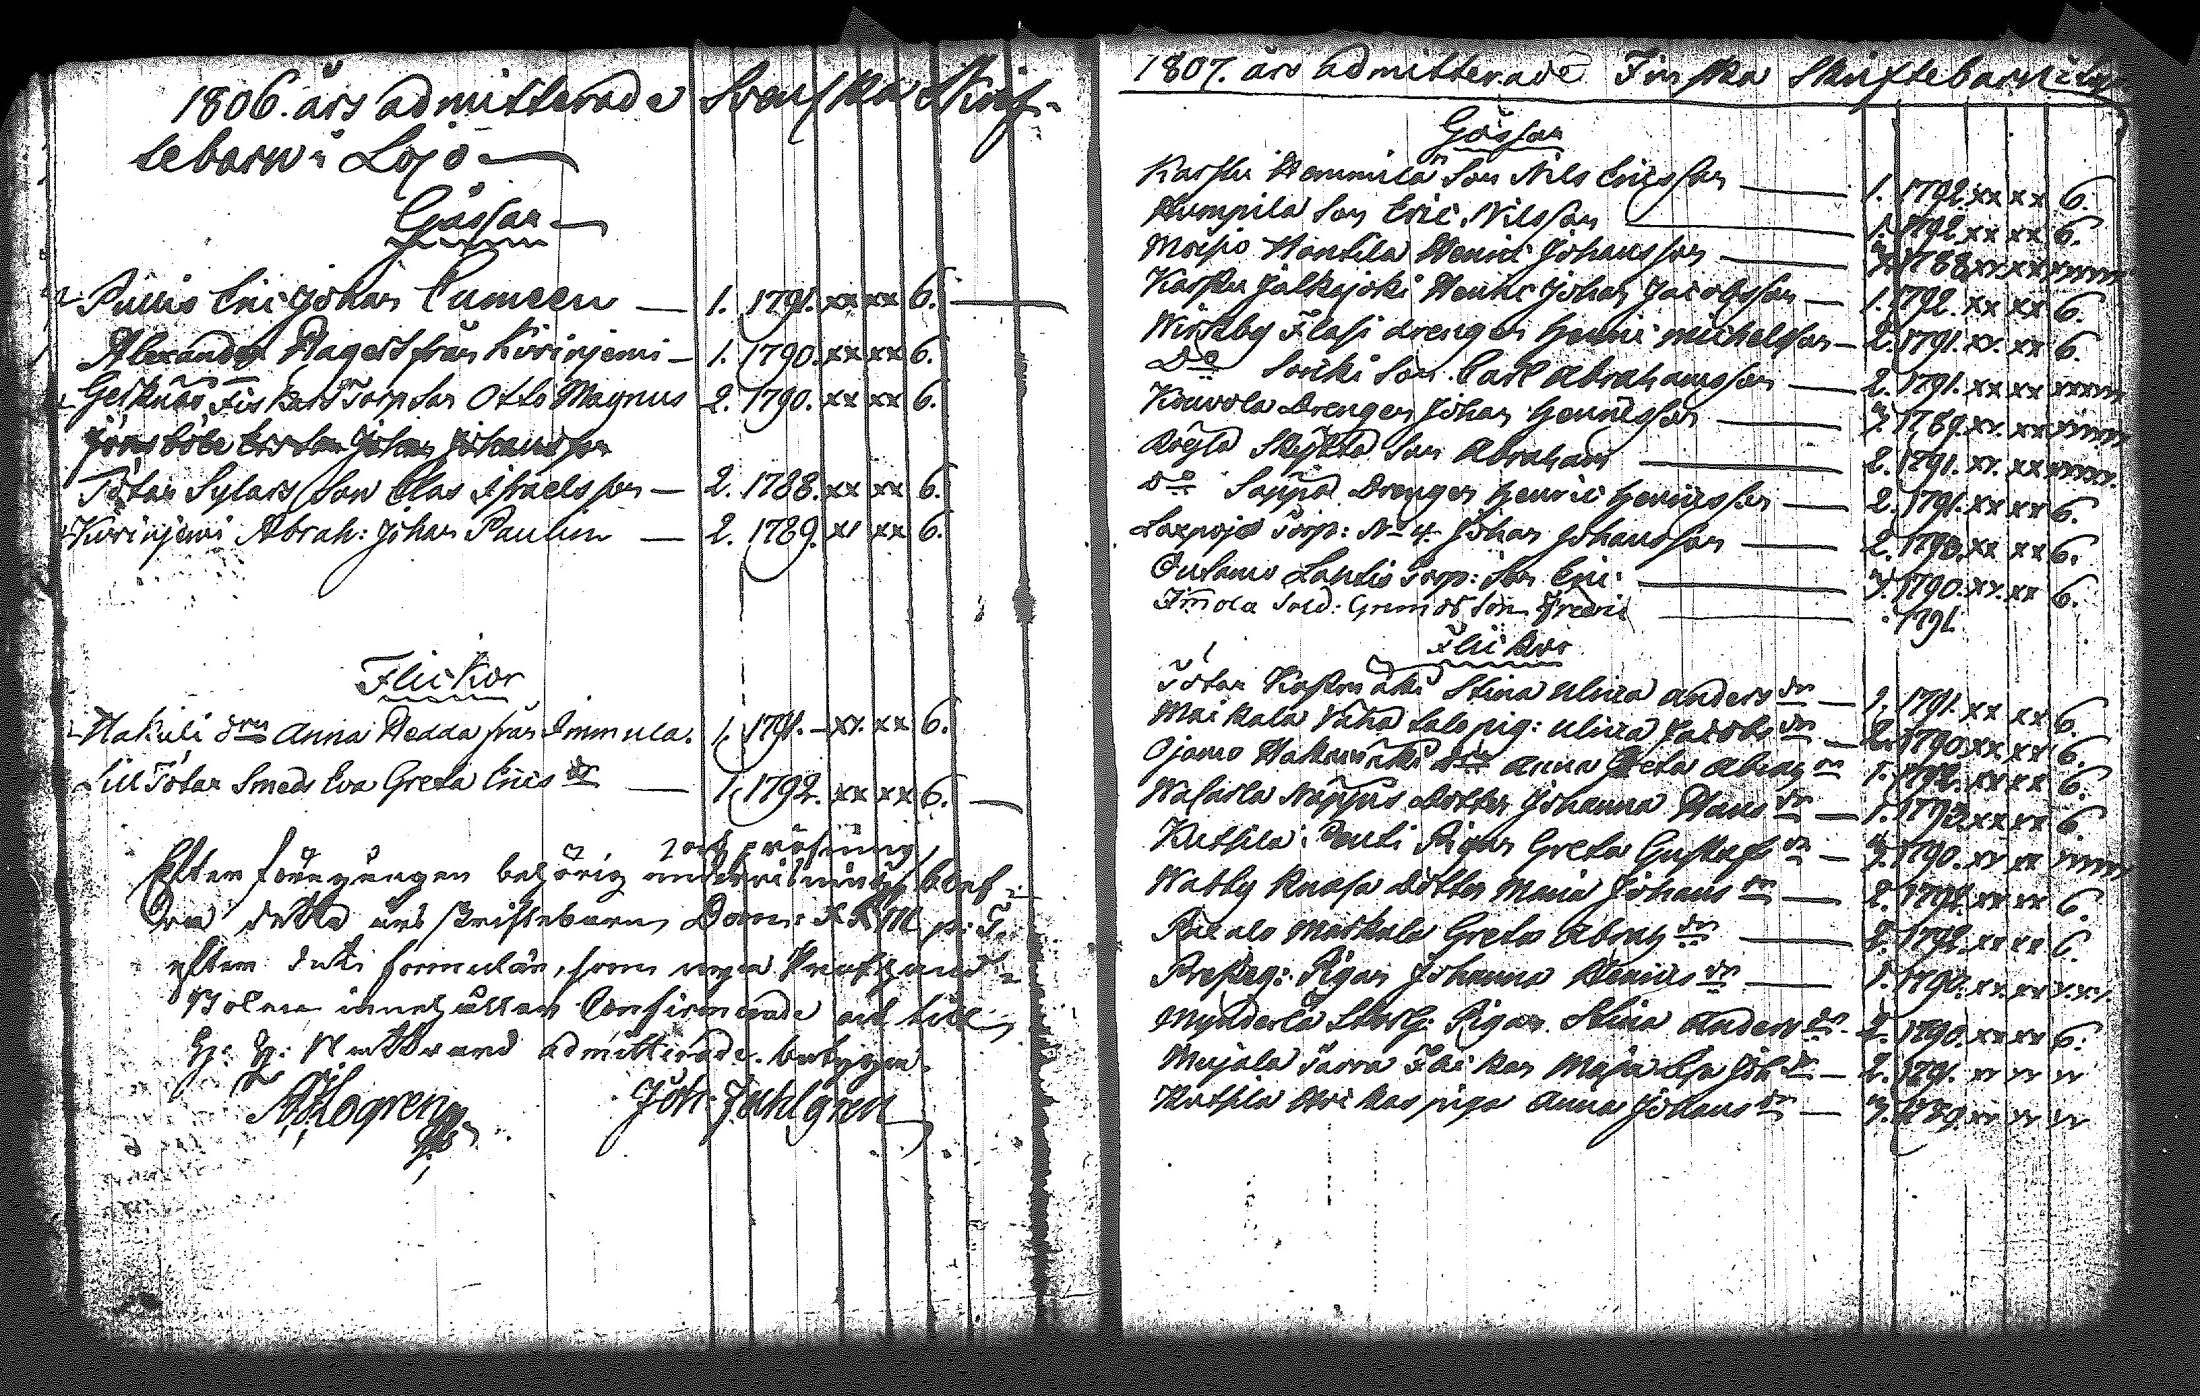 1806. års admitterade Svenska Skrif-
tebarn i Lojo
Gåssar
Pullis Eric Johan Cumeen — 1. 1791. xx xx 6.
Alexander Hagert från Kirinjemi — 1. 1790. xx xx 6.
Gerknäs Fiskars Torp Son Otto Magnus 2. 1790. xx xx 6.
Johan Johansson
Tötar Sylars Son Clas Israelsson — 2. 1788. xx xx 6.
Kirinjemi Abrah: Johan Paulin — 2. 1789. xx xx 6.
Flickor
Hakuli dren Anna Hedda från Immula. 1. 1791. xx. xx 6.
Lill Tötar Smeds Eva Greta Erics dr — 1. 1792. xx xx 6.
och pröfning
Efter föregången behörig underwisning blef-
vo detta års skriftebarn Dom:
efter det formulär, som nya Kyrkohand-
Boken innehåller Confirmerade och till
H: H: Nattward admitterade. betygar
Joh: Juhlgren
1807. års admitterade Finska Skriftebarn i Lojo
Gåssar
Karstu Hemmilä Son Nils Ericsson — 1. 1792. xx xx 6.
Humpila Son Eric Nilsson 1. 1792. xx xx 6.
Moisio Hantila Henric Johansson — 1788 xx. xx
Karstu Jälkijoki Henric Johan Jacobsson — 1. 1792. xx xx 6.
Wirkby Flasi drengen Henric Michelsson — 2. 1791. xx. xx 6.
Do Son Carl Abrahamsson — 2. 1791. xx xx
Kouvola Drengen Johan Henricsson — 1789. xx. xx
Röylä Skyttä Son Abraham — 2. 1791. xx. xx
do Seppä Drengen Henric Henricsson — 2. 1791. xx xx 6.
Laxpojo Torp: No 4. Johan Johansson — 2. 1790. xx xx 6.
Outamo Lantis Torp: Son Eric — 1790. xx. xx 6.
Immola Sold: Son Fredric — 1791
Flickor
Tötar Koskenmäki Stina Ulrica Anders dr — 1. 1791. xx xx 6.
Maikala Vähä Talo pig: Ulrica Jacobs dr — 2. 1790 xx. xx 6.
Ojamo Hakamäki dr Anna Greta Abrah dr 1. 1792. xx xx 6.
Wasarla Nappus Dotter Johanna Hans dr — 1. 1793 xx xx 6.
Kutsila Penti Pigan Greta Gustafs dr — 1790. xx xx
Watby Knapa Dotter Maria Johans dr — 2. 1792. xx xx 6.
Paxalo Maskala Greta Abrah dr — 2. 1792. xx xx 6.
Prestg: Pigan Johanna Henrics dr — 1. 1790. xx. xx
Mynderlä Storg: Pigan Stina Anders dr. 2. 1790. xx xx 6.
Mujala Flickan Maja Lisa Joh dr — 2. 1791. xx
Kutsila piga Anna Johans dr — 1789. xx